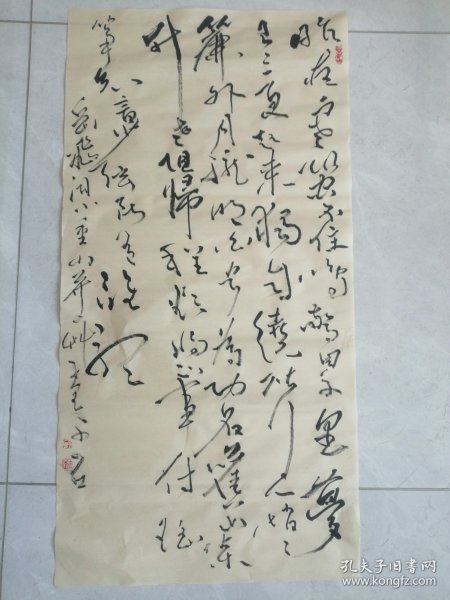 昨夜寒蛩不住鸣惊回千里梦
已三更起来独自绕阶行人悄悄
帘外月胧明白首为功名旧山松
竹老阻归程欲将心事付瑶
琴知音少弦断有谁听
岳飞词小重山
孔夫子旧书网
www.kongfz.com